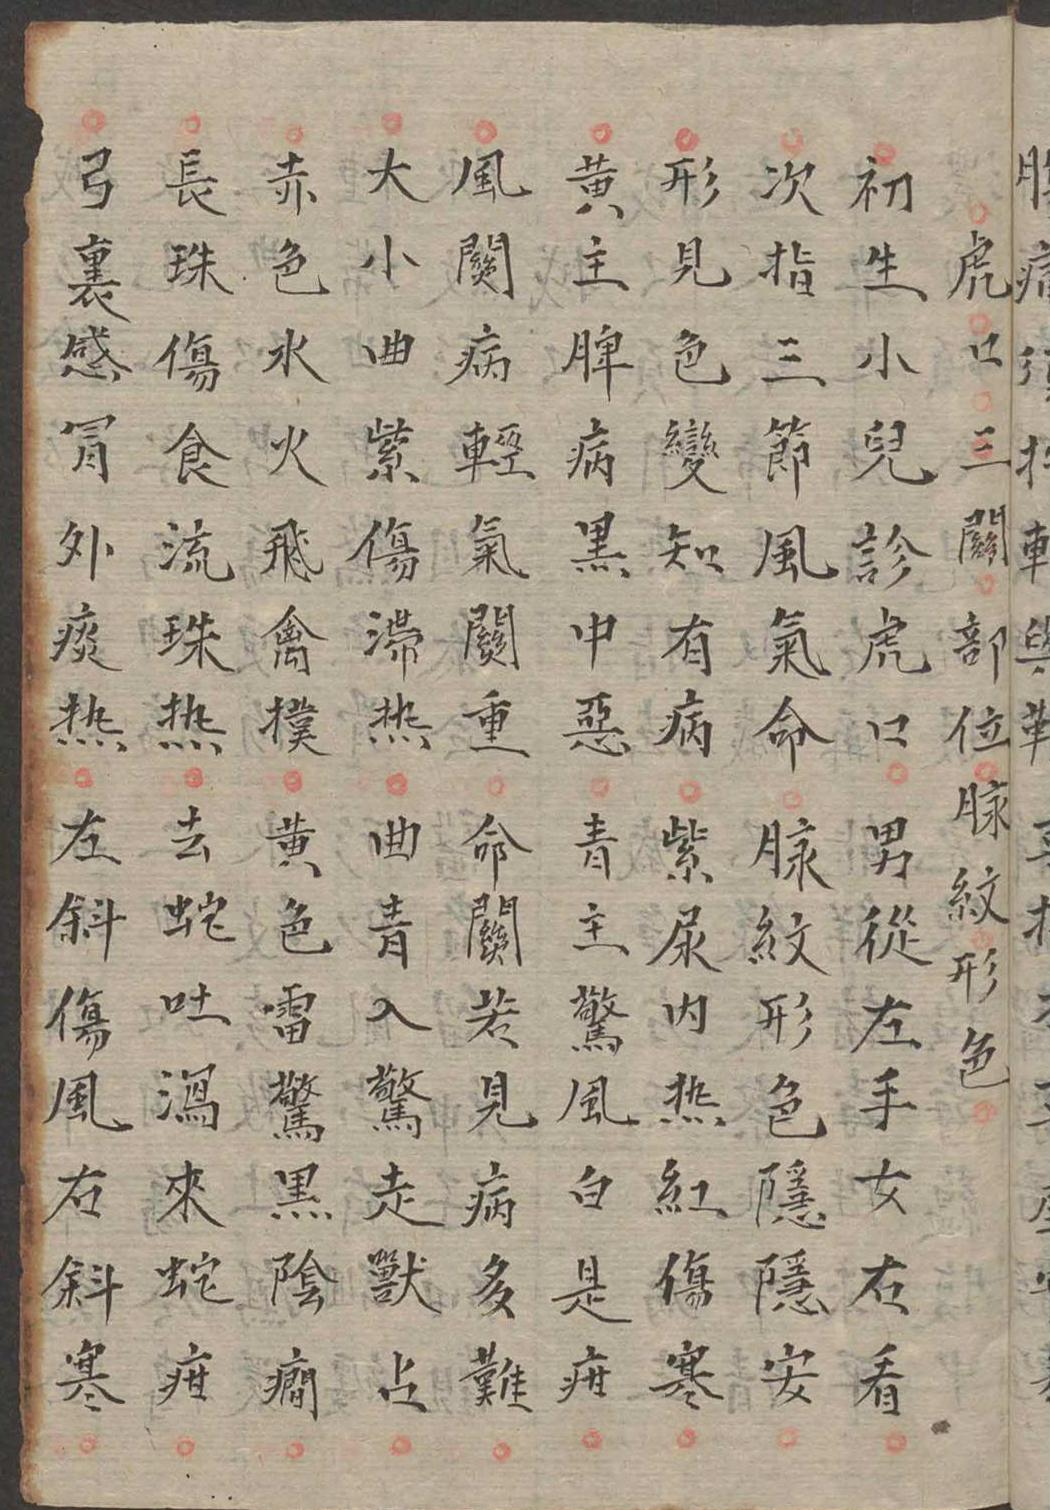 虎口三關部位脉紋形色
初生小兒診虎口男從左手女右看
次指三節風氣命脉紋形色隱隱安
形見色變知有病紫尿内热紅傷寒
黄主脾病黒中惡青主驚風白是疳
風関病輕氣関重命関若見病多難
大小曲紫傷滯热曲青入驚走獸占
赤色水火飛禽撲黄色雷驚黒陰癇
長珠傷食流珠热去蛇吐瀉來蛇疳
弓裏感冐外痰热左斜傷風右斜寒